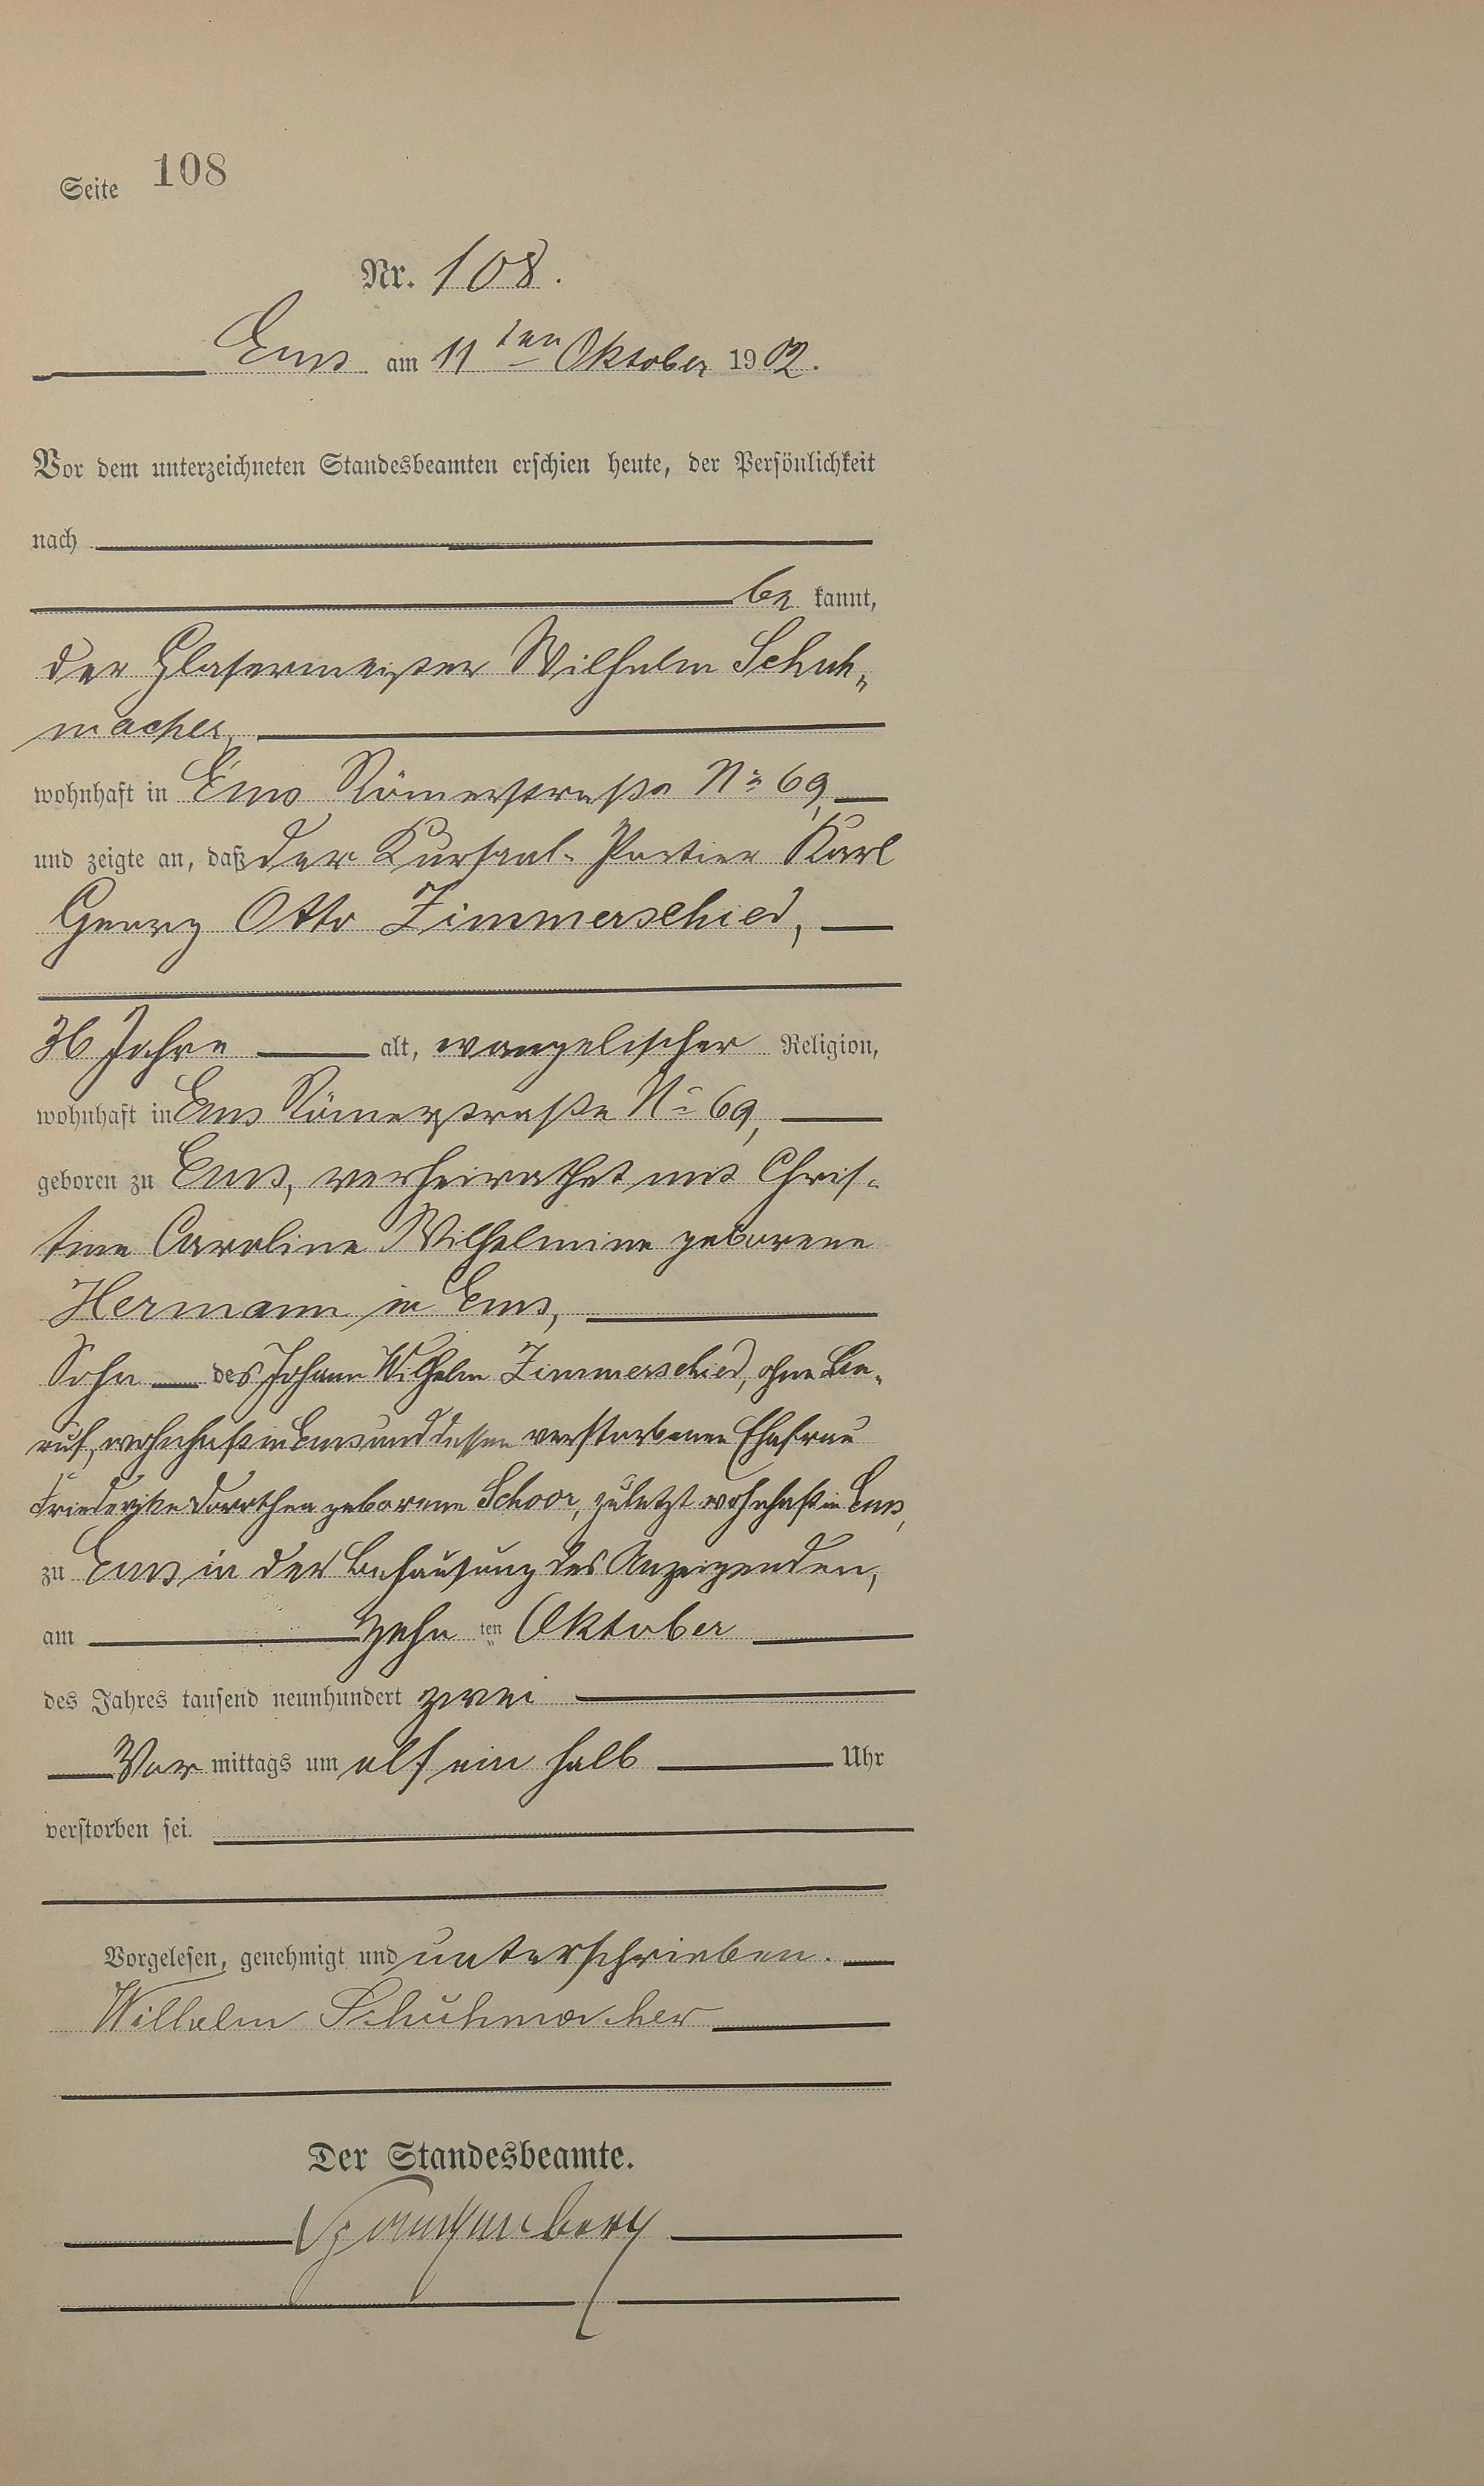 Seite 108
Nr. 108.
Ems am 11ten Oktober 1902.
Vor dem unterzeichneten Standesbeamten erschien heute, der Persönlichkeit
nach
be kannt,
der Glasermeister Wilhelm Schuh-
macher,
wohnhaft in Ems Römerstraße No 69,
und zeigte an, daß der Kursaal-Portier Karl
Georg Otto Zimmerschied,
36 Jahre alt, evangelischer Religion,
wohnhaft in Ems Römerstraße No 69,
geboren zu Ems, verheirathet mit Chris-
tine Caroline Wilhelmine geborene
Hermann in Ems,
Sohn des Johann Wilhelm Zimmerschied, ohne Be-
ruf, wohnhaft in Ems und dessen verstorbenen Ehefrau
Dorothea geborene Schoor, zuletzt wohnhaft in Ems,
zu Ems in der Behausung des Anzeigenden,
am zehn ten Oktober
des Jahres tausend neunhundert zwei
Vor mittags um elf ein halb Uhr
verstorben sei.
Vorgelesen, genehmigt und unterschrieben.
Wilhelm Schuhmacher
Der Standesbeamte.